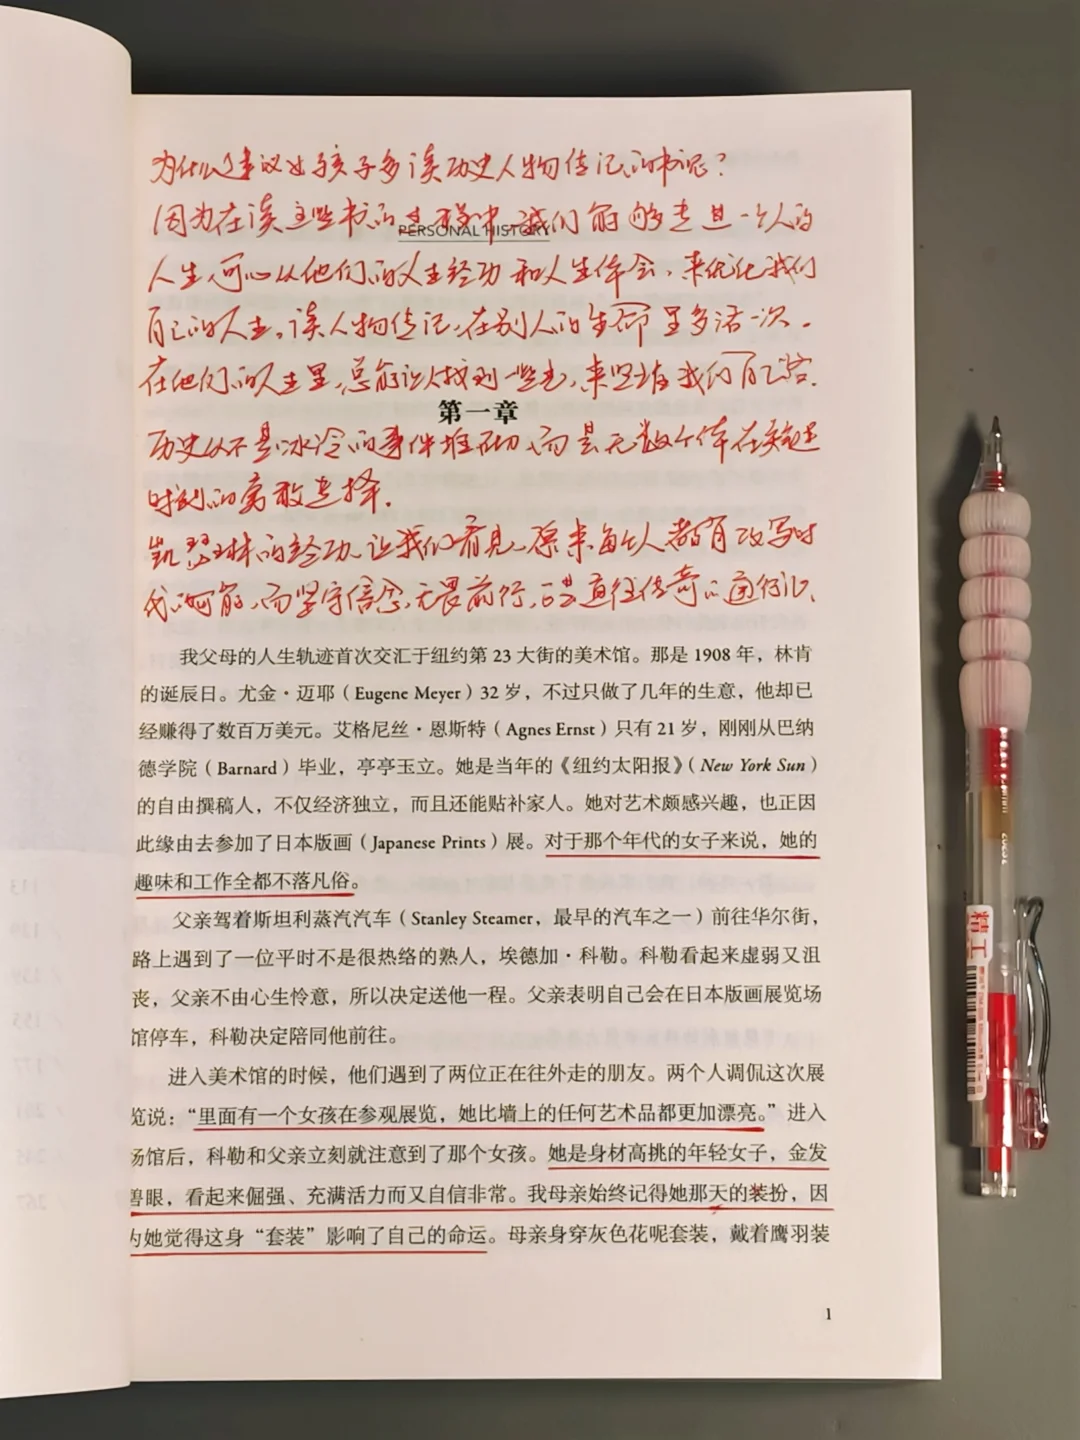 为什么建议女孩子多读历史人物传记的书呢？
因为在读这些书的过程中，我们能够走进一个人的
PERSONAL HISTORY
人生，可以从他们的人生经历和人生体会，来优化我们
自己的人生。读人物传记，在别人的生命里多活一次。
在他们的人生里，总能让人找到一些光，来照亮我们自己路.
第一章
历史从不是冰冷的事件堆砌，而是无数个体在关键
时刻的勇敢选择.
凯瑟琳的经历，让我们看见，原来每个人都有改写时
代的可能，而坚守信念，无畏前行，是直往传奇的通行证、
我父母的人生轨迹首次交汇于纽约第 23 大街的美术馆。那是 1908 年，林肯
的诞辰日。尤金·迈耶（Eugene Meyer）32 岁，不过只做了几年的生意，他却已
经赚得了数百万美元。艾格尼丝·恩斯特（Agnes Ernst）只有 21 岁，刚刚从巴纳
德学院（Barnard）毕业，亭亭玉立。她是当年的《纽约太阳报》（New York Sun）
的自由撰稿人，不仅经济独立，而且还能贴补家人。她对艺术颇感兴趣，也正因
此缘由去参加了日本版画（Japanese Prints）展。对于那个年代的女子来说，她的
趣味和工作全都不落凡俗。
父亲驾着斯坦利蒸汽汽车（Stanley Steamer，最早的汽车之一）前往华尔街，
路上遇到了一位平时不是很热络的熟人，埃德加·科勒。科勒看起来虚弱又沮
丧，父亲不由心生怜意，所以决定送他一程。父亲表明自己会在日本版画展览场
馆停车，科勒决定陪同他前往。
进入美术馆的时候，他们遇到了两位正在往外走的朋友。两个人调侃这次展
览说：“里面有一个女孩在参观展览，她比墙上的任何艺术品都更加漂亮。”进入
场馆后，科勒和父亲立刻就注意到了那个女孩。她是身材高挑的年轻女子，金发
碧眼，看起来倔强、充满活力而又自信非常。我母亲始终记得她那天的装扮，因
为她觉得这身“套装”影响了自己的命运。母亲身穿灰色花呢套装，戴着鹰羽装
1
精工